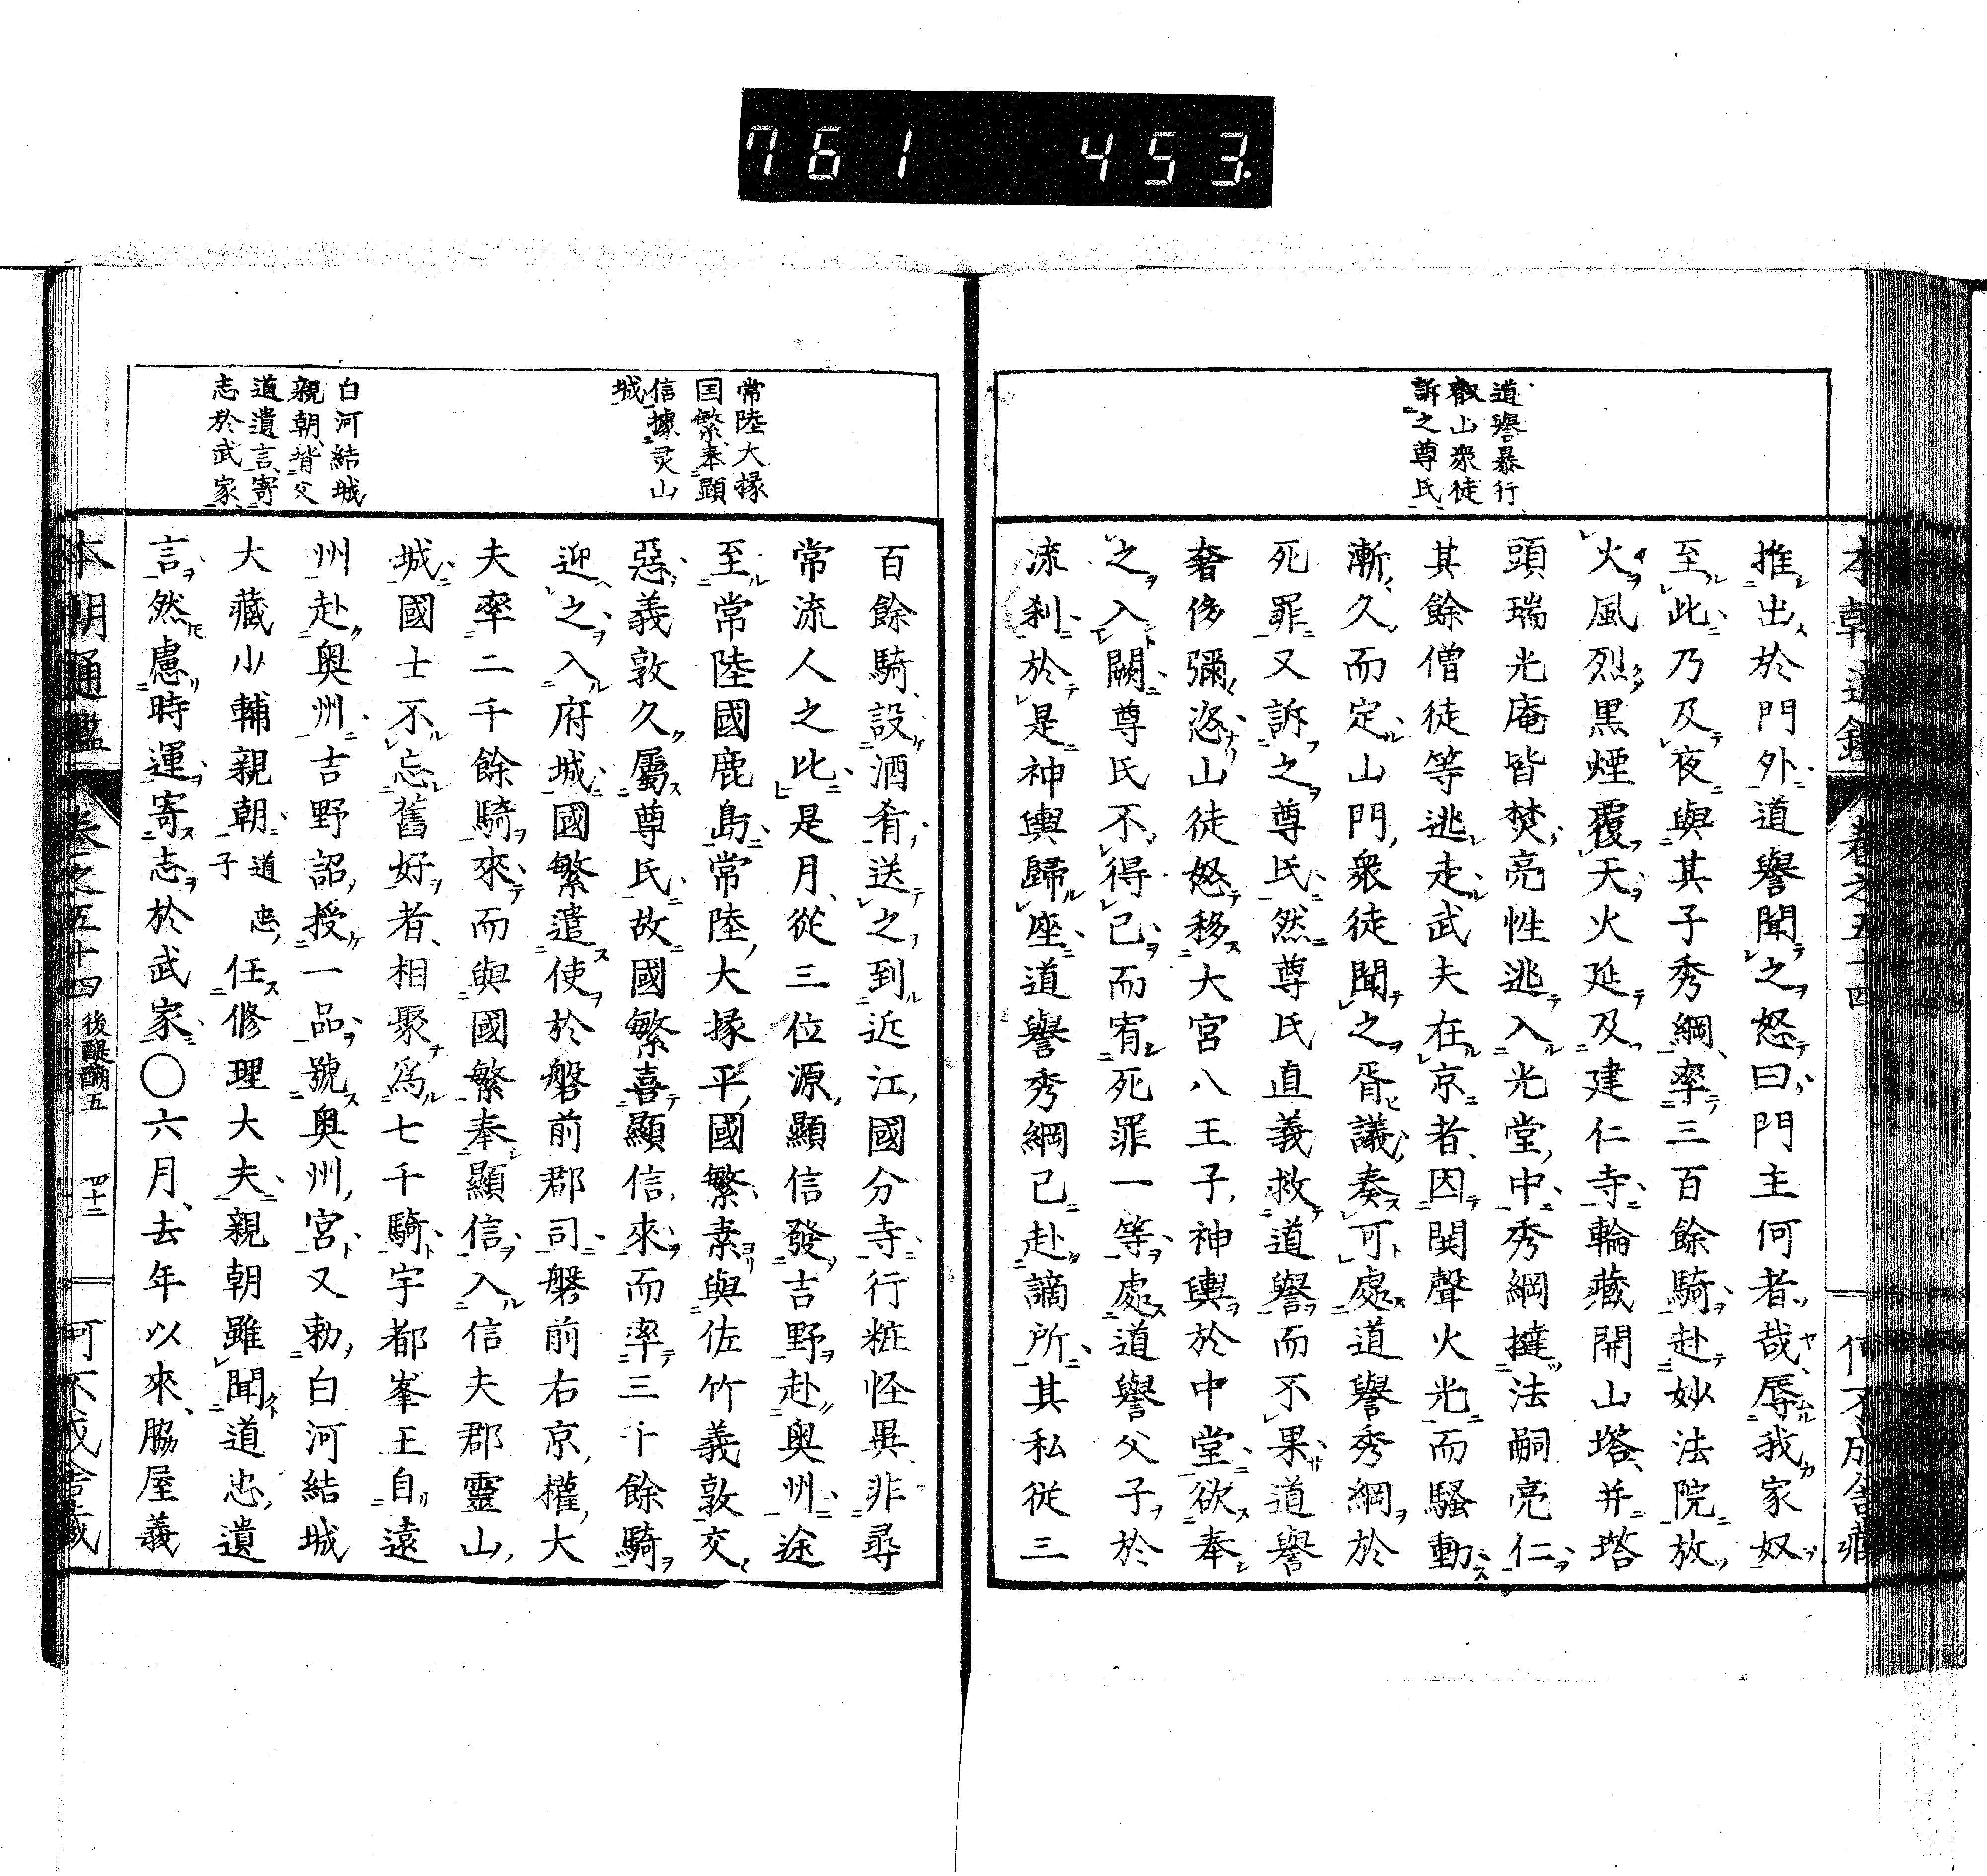 761 453.
道譽暴行
叡山衆徒
訴之尊氏
推出於門外道譽聞之怒曰門主何者哉辱我家奴
至此乃及夜與其子秀綱率三百餘騎赴妙法院放
火風烈黒煙覆天火延及建仁寺輪藏開山塔并塔
頭瑞光庵皆焚亮性逃入光堂中秀綱撻法嗣亮仁
其餘僧徒等逃走武夫在京者因鬨聲火光而騷動
漸久而定山門衆徒聞之胥議奏可處道譽秀綱於
死罪又訴之尊氏然尊氏直義救道譽而不果道譽
奢侈彌恣山徒怒移大宮八王子神輿於中堂欲奉
之入闕尊氏不得已而宥死罪一等處道譽父子於
流刹於是神輿歸座道譽秀綱已赴謫所其私從三
常陸大掾
国繁奉顕
信據灵山
城
白河結城
親朝背父
道遺言寄
志於武家
百餘騎設酒肴送之到近江國分寺行粧怪異非尋
常流人之比是月從三位源顯信發吉野赴奥州途
至常陸國鹿島常陸大掾平國繁素與佐竹義敦交
惡義敦久屬尊氏故國繁喜顯信來而率三十餘騎
迎之入府城國繁遣使於磐前郡司磐前右京權大
夫率二千餘騎來而與國繁奉顯信入信夫郡靈山
城國士不忘舊好者相聚爲七千騎宇都峯王自遠
州赴奥州吉野詔授一品號奥州宮又勅白河結城
大藏小輔親朝道忠子任修理大夫親朝雖聞道忠遺
言然慮時運寄志於武家○六月去年以來脇屋義
本朝通鑑 卷之五十四 後醍醐五 四十二 何不成舎藏